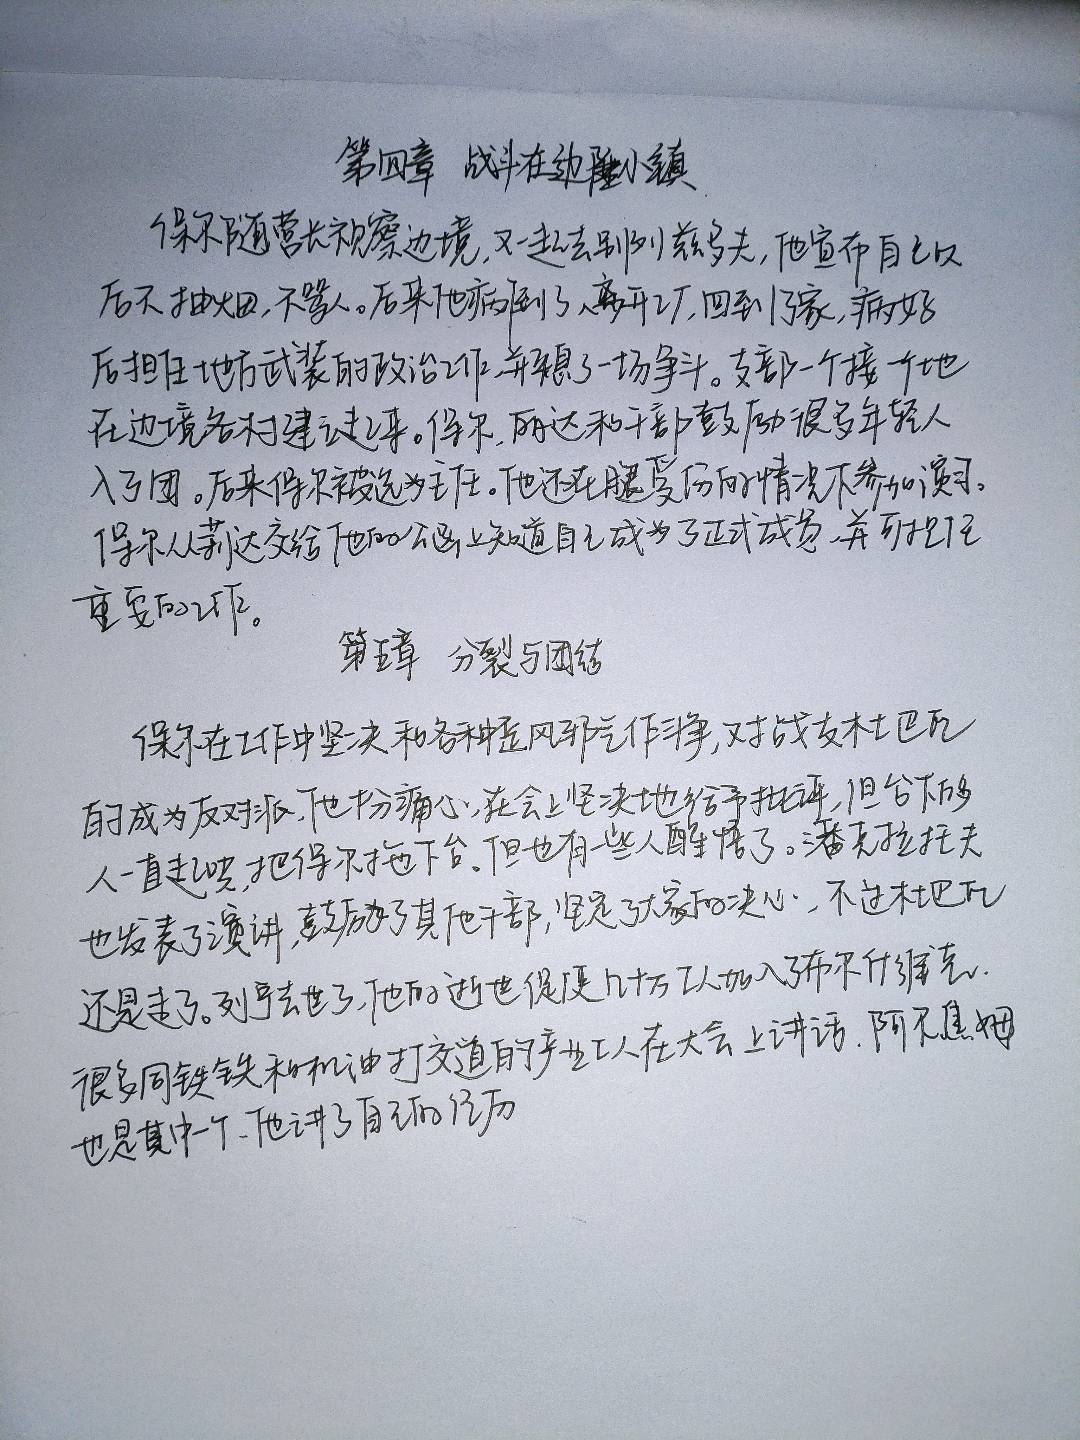 第四章 战斗在边陲小镇
保尔随营长视察边境,又一起去别列兹多夫,他宣布自己以
后不抽烟,不骂人。后来他病倒了、离开工厂,回到了家,病好
后担任地方武装的政治工作,并平息了一场争斗。支部一个接一个地
在边境各村建立起来。保尔,丽达和干部鼓励很多年轻人
入了团。后来保尔被选为主任。他还在腿受伤的情况下参加演习。
保尔从莉达交给他的公函上知道自己成为了正式成员,并可担任
重要的工作。
第五章 分裂与团结
保尔在工作中坚决和各种歪风邪气作斗争,对战友杜巴瓦
的成为反对派,他十分痛心,在会上坚决地给予批评,但台下的
人一直起哄,把保尔拖下台。但也有一些人醒悟了。潘克拉托夫
也发表了演讲,鼓励了其他干部,坚定了大家的决心,不过杜巴瓦
还是走了。列宁去世了,他的逝世促使几十万工人加入了布尔什维克、
很多同铁铁和机油打交道的产业工人在大会上讲话.阿尔焦姆
也是其中一个、他讲了自己的经历